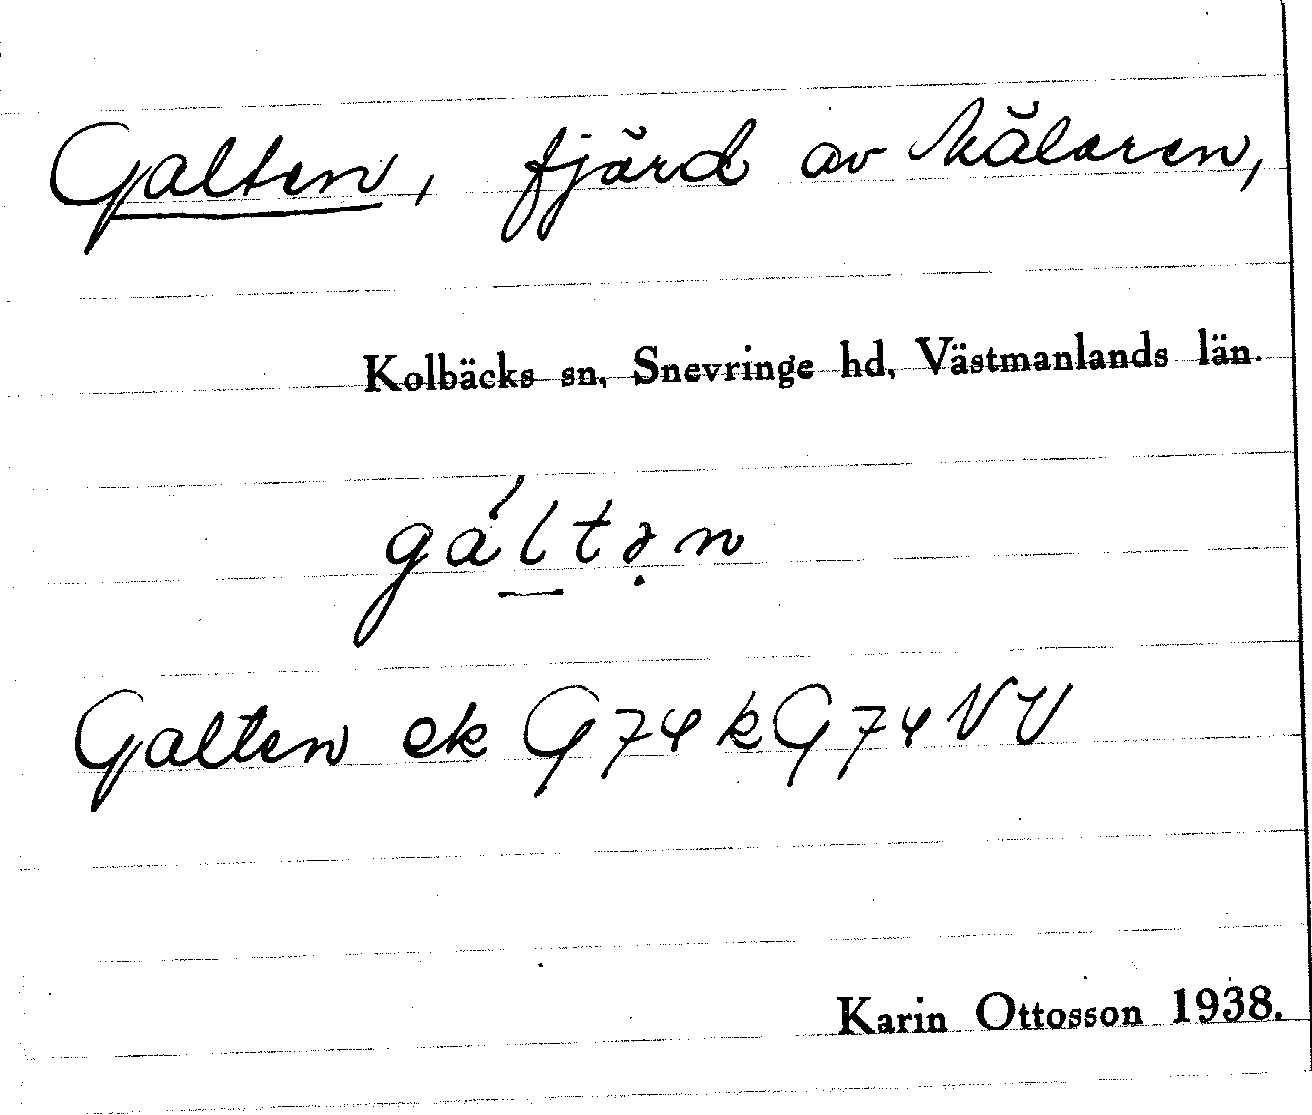 Galten, fjärd av Mälaren,
Kolbäcks sn, Snevringe hd, Västmanlands län.
gáltən
Galten ek G 74 k G 74 NV
Karin Ottosson 1938.